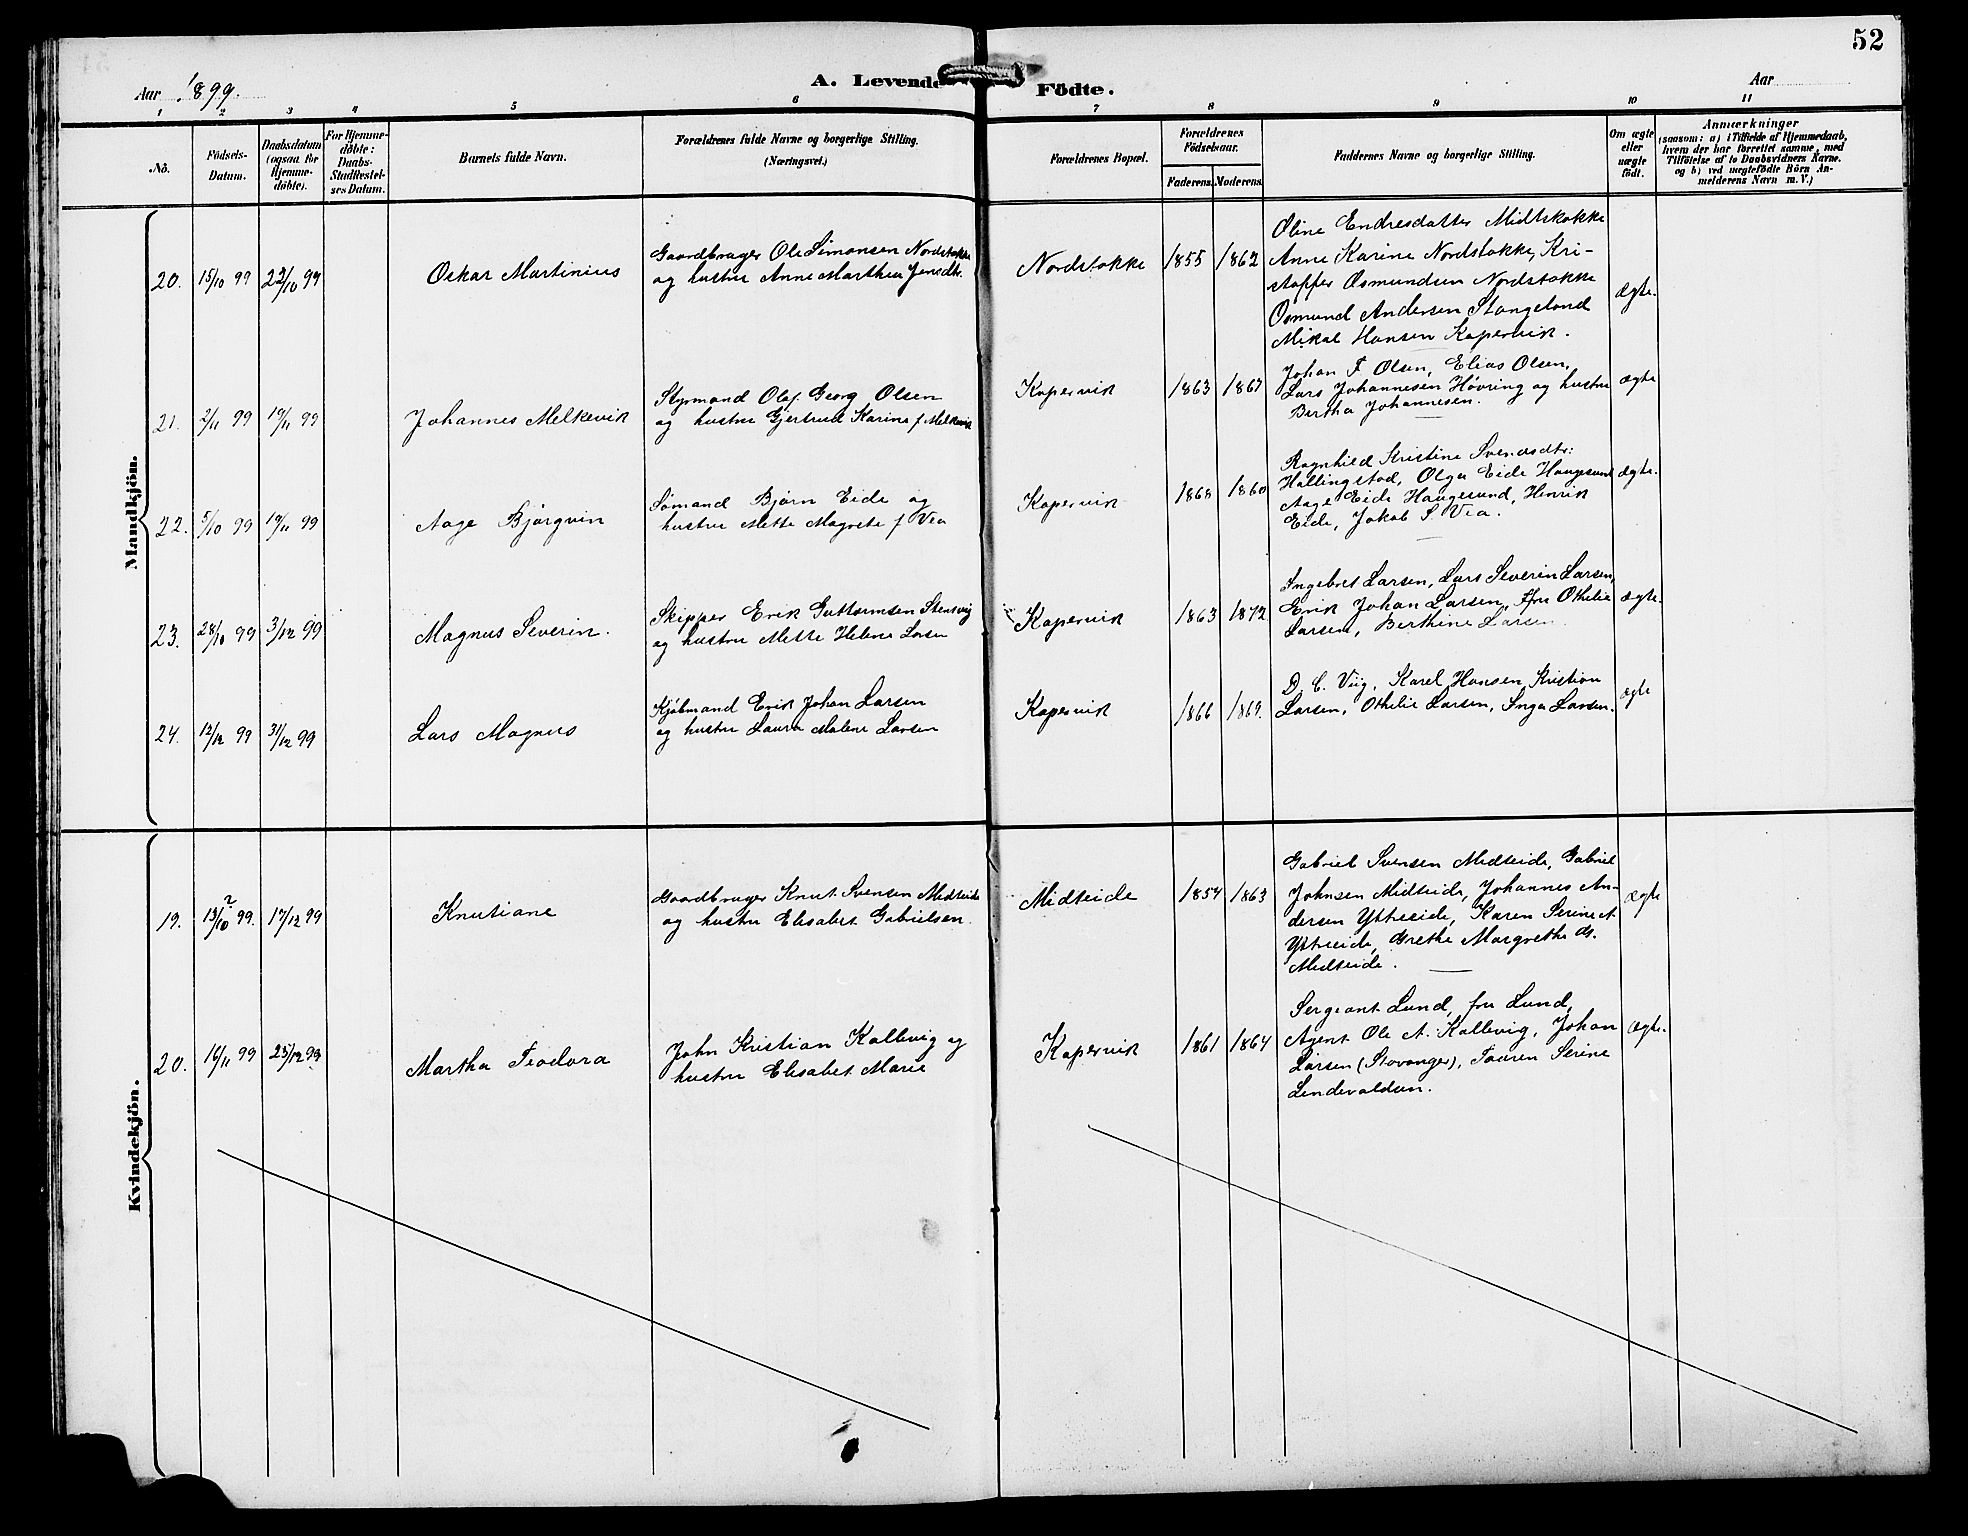 52
Aar 1899.
A. Levende Födte.
Aar
1 2 3 4 5 6 7 8 9 10 11
No.
Födsels-
Datum.
Daabsdatum
(ogsaa for
Hjemme-
döbte).
For Hjemme-
döbte:
Daabs-
Stadfæstel-
ses Datum.
Barnets fulde Navn.
Forældrenes fulde Navne og borgerlige Stilling.
(Næringsvei.)
Forældrenes Bopæl.
Forældrenes
Födselsaar.
Faderens. Moderens.
Faddernes Navne og borgerlige Stilling.
Om ægte
eller
uægte
födt.
Anmærkninger
(saasom: a) i Tilfælde af Hjemmedaab,
hvem der har forrettet samme, med
Tilföielse af to Daabsvidners Navne.
og b) ved uægtefödte Börn An-
melderens Navn m. V.)
Mandkjön.
20. 15/10 99 22/10 99
Oskar Martinius
Gaardbruger Ole Simonsen Nordstokke
og hustru Anne Marthea Jensdtr.
Nordstokke
1855 1862
Oline Endresdatter Midtstokke
Anne Karine Nordstokke, Kri-
stoffer Osmundsen Nordstokke
Osmund Andersen Stangeland
Mikal Hansen Kopervik.
Ægte.
21. 2/11 99 19/11 99
Johannes Melkevik
Styrmand Olaf Georg Olsen
og hustru Gjertrud Karine f Melkevik
Kopervik
1863 1867
Johan F Olsen, Elias Olsen,
Lars Johannesen Høvring og hustru
Bertha Johannesen.
ægte
22. 5/10 99 19/11 99
Aage Bjørgvin
Sømand Bjørn Eide og
hustru Mette Magrete f Vea
Kopervik
1868 1860
Ragnhild Kristine Svendsdtr:
Hallingstad, Olga Eide Haugesund
Aage Eide Haugesund, Henrik
Eide, Jakob S. Vea.
ægte.
23. 28/10 99 3/12 99
Magnus Severin.
Skipper Erik Guttormsen Stensvig
og hustru Mette Helene Larsen
Kopervik
1863 1872
Ingebret Larsen, Lars Severin Larsen,
Erik Johan Larsen, Fru Othelie
Larsen, Berthine Larsen
ægte.
24. 12/12 99 31/12 99
Lars Magnus
Kjøbmand Erik Johan Larsen
og hustru Laura Malene Larsen
Kopervik
1866 1869.
D. C. Viig, Karel Hansen Kristian
Larsen, Othelie Larsen, Inga Larsen.
ægte
Kvindekjön.
19. 13/10 99. 17/12 99
Knutiane
Gaardbruger Knut Svensen Midteide
og hustru Elisabet Gabrielsen.
Midteide
1854 1863
Gabriel Svensen Midteide, Gabriel
Johnsen Midteide, Johannes An-
dersen Yttreeide, Karen Serine A
Yttreeide, Grethe Margrethe G.
Midteide.
Ægte
20. 16/11 99 25/12 99
Martha Teodora
John Kristian Kallevig og
hustru Elisabet Marie
Kopervik
1861 1864
Sergeant Lund, fru Lund,
Agent Ole A. Kallevig, Johan
Larsen (Stavanger), Taaren Serine
Lendevaldsen.
Ægte.